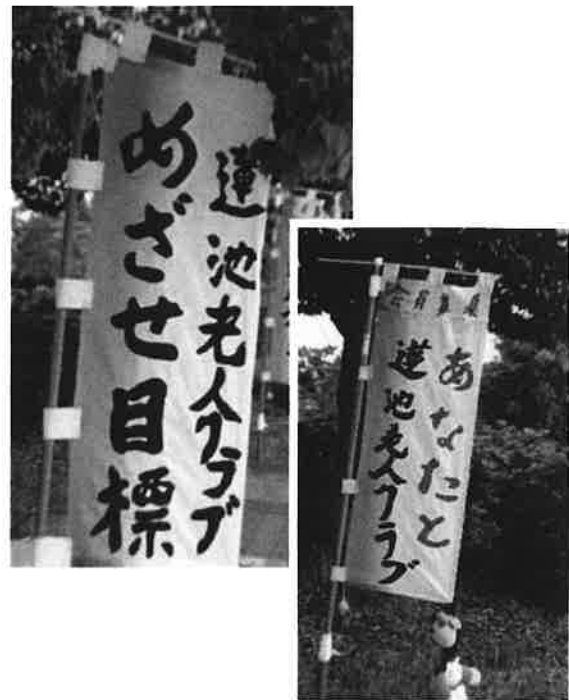 蓮池老人クラブ
めざせ目標
会員募集
あなたと
蓮池老人クラブ